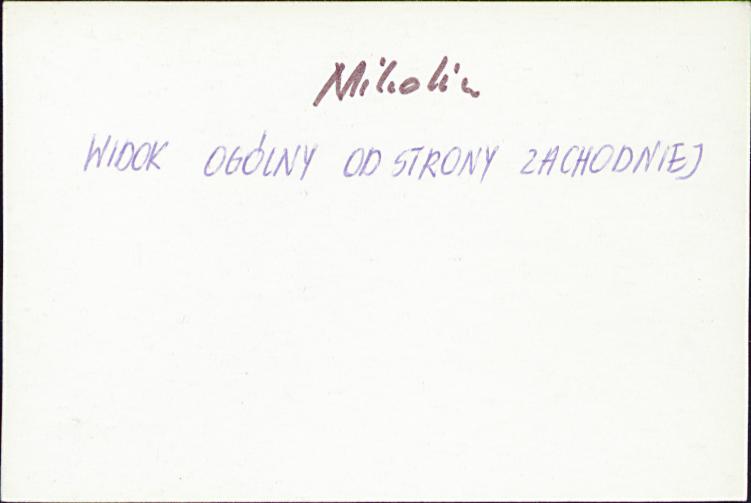 Mikolin
WIDOK OGÓLNY OD STRONY ZACHODNIEJ